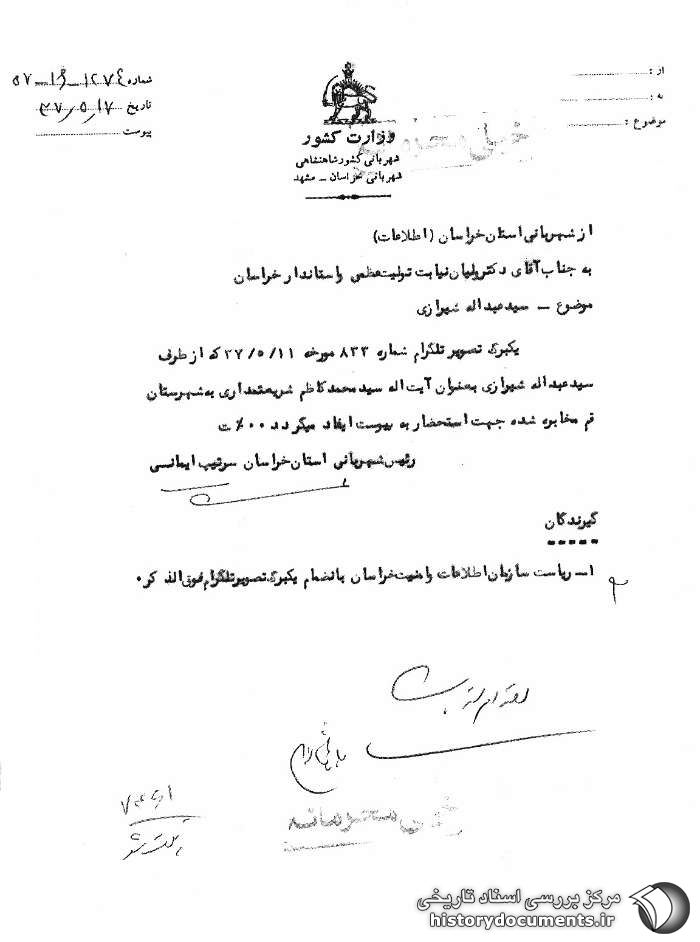 از :
به :
موضوع :
وزارت کشور
شهربانی کشور شاهنشاهی
شهربانی خراسان – مشهد
شماره ۱۲۷۴-۱۶-۵۷
تاریخ ۳۷/۵/۱۷
پیوست
خیلی محرمانه
از شهربانی استان خراسان (اطلاعات)
به جناب آقای دکتر ولیان نیابت تولیت عظمی و استاندار خراسان
موضوع – سید عبداله شیرازی
یکبرگ تصویر تلگرام شماره ۸۳۳ مورخه ۳۷/۵/۱۱ که از طرف
سید عبداله شیرازی بعنوان آیت اله سید محمد کاظم شریعتمداری به شهرستان
قم مخابره شده جهت استحضار به پیوست ایفاد میگردد ۰۰٪ ت
رئیس شهربانی استان خراسان سرتیپ ایمانی
گیرندگان
۱– ریاست سازمان اطلاعات و امنیت خراسان بانضمام یکبرگ تصویر تلگرام فوق الذکر۰
خیلی محرمانه
مرکز بررسی اسناد تاریخی
historydocuments.ir